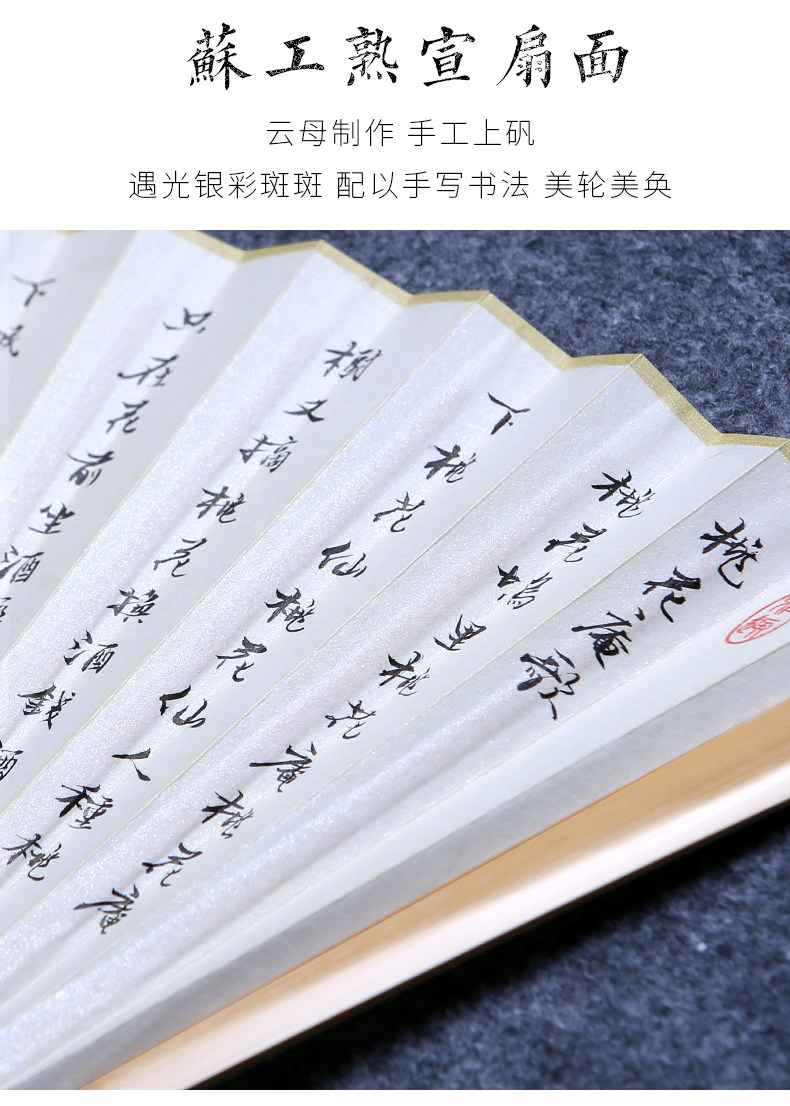 蘇工熟宣扇面
云母制作 手工上矾
遇光银彩斑斑 配以手写书法 美轮美奂
桃花庵歌
桃花塢里桃花庵桃花庵
下桃花仙桃花仙人種桃
樹又摘桃花換酒錢酒
只在花前坐酒